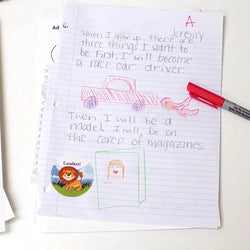 A
Jeremy
When I grow up, there are
three things I want to
be. First, I will become
a race car driver.
Then I will be a
model. I will be on
the cover of magazines.
Excellent!